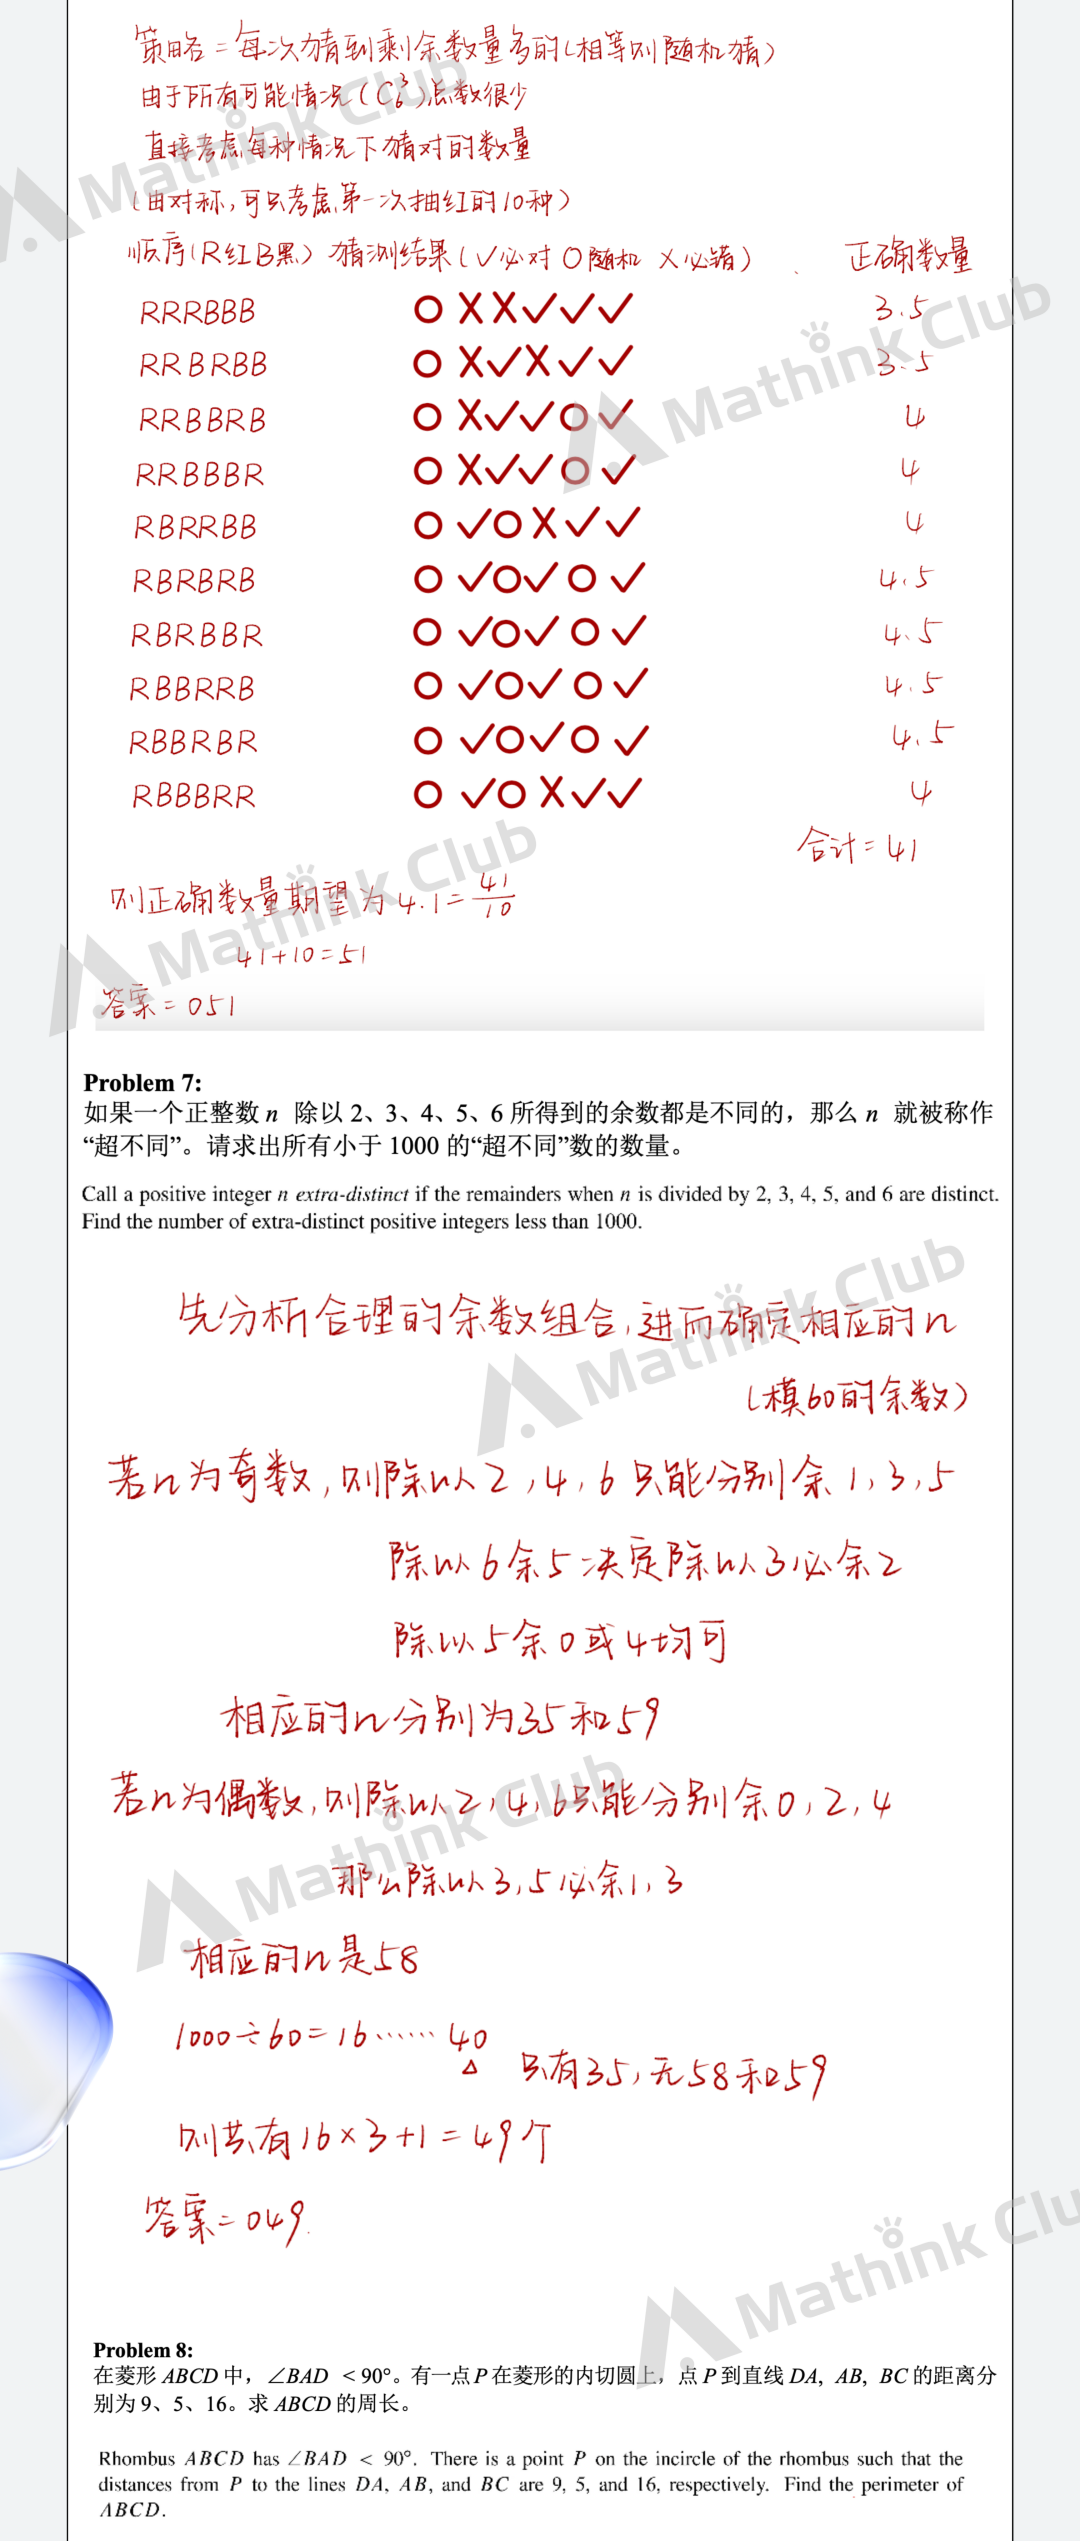 策略=每次猜到剩余数量多的(相等则随机猜)
由于所有可能情况(C₆³)总数很少
直接考虑每种情况下猜对的数量
(由对称,可只考虑第一次抽红的10种)
顺序(R红B黑) 猜测结果(✓必对 O随机 X必错) 正确数量
RRRBBB O X X ✓ ✓ ✓ 3.5
RRBRBB O X ✓ X ✓ ✓ 3.5
RRBBRB O X ✓ ✓ O ✓ 4
RRBBBR O X ✓ ✓ O ✓ 4
RBRRBB O ✓ O X ✓ ✓ 4
RBRBRB O ✓ O ✓ O ✓ 4.5
RBRBBR O ✓ O ✓ O ✓ 4.5
RBBRRB O ✓ O ✓ O ✓ 4.5
RBBRBR O ✓ O ✓ O ✓ 4.5
RBBBRR O ✓ O X ✓ ✓ 4
合计=41
则正确数量期望为4.1=41/10
41+10=51
答案=051
Problem 7:
如果一个正整数 n 除以 2、3、4、5、6 所得到的余数都是不同的，那么 n 就被称作
“超不同”。请求出所有小于 1000 的“超不同”数的数量。
Call a positive integer n extra-distinct if the remainders when n is divided by 2, 3, 4, 5, and 6 are distinct.
Find the number of extra-distinct positive integers less than 1000.
先分析合理的余数组合,进而确定相应的n
(模60的余数)
若n为奇数,则除以2,4,6只能分别余1,3,5
除以6余5决定除以3必余2
除以5余0或4均可
相应的n分别为35和59
若n为偶数,则除以2,4,6只能分别余0,2,4
那么除以3,5必余1,3
相应的n是58
1000÷60=16……40
△ 只有35,无58和59
则共有16×3+1=49个
答案=049.
Problem 8:
在菱形 ABCD 中，∠BAD < 90°。有一点 P 在菱形的内切圆上，点 P 到直线 DA, AB, BC 的距离分
别为 9、5、16。求 ABCD 的周长。
Rhombus ABCD has ∠BAD < 90°. There is a point P on the incircle of the rhombus such that the
distances from P to the lines DA, AB, and BC are 9, 5, and 16, respectively. Find the perimeter of
ABCD.
Mathink Club
Mathink Club
Mathink Club
Mathink Club
Mathink Club
Mathink Clu